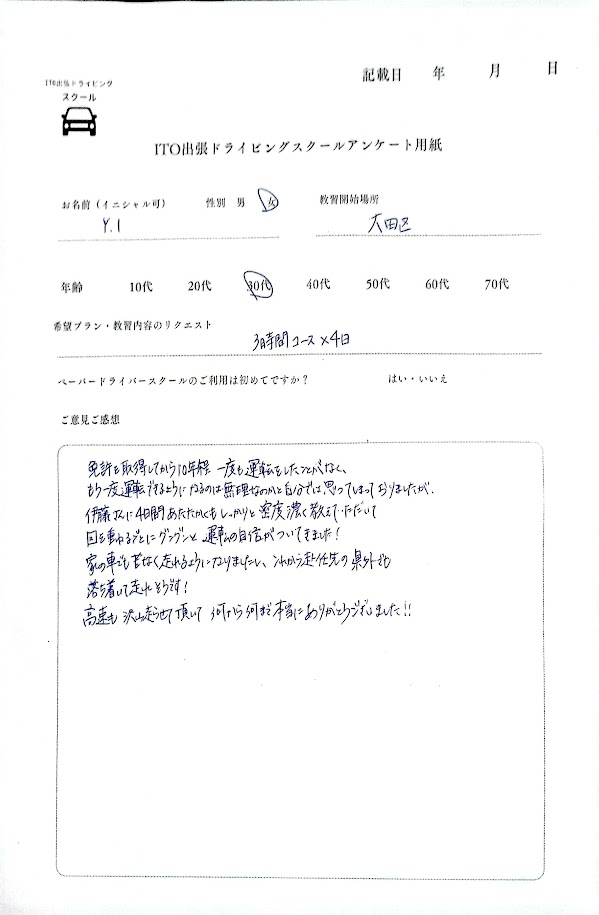 記載日 年 月 日
ITO出張ドライビング
スクール
ITO出張ドライビングスクールアンケート用紙
お名前(イニシャル可) 性別 男 女 教習開始場所
Y.I 大田区
年齢 10代 20代 30代 40代 50代 60代 70代
希望プラン・教習内容のリクエスト
3時間コース×4日
ペーパードライバースクールのご利用は初めてですか? はい・いいえ
ご意見ご感想
免許を取得してから10年程 一度も運転をしたことがなく、
もう一度運転できるようになるのは無理なのかと自分では思ってしまっておりましたが、
伊藤さんに4日間あたたかくもしっかりと密度濃く教えていただいて
回を重ねるごとにグングンと運転の自信がついてきました!
家の車でも苦なく走れるようになりましたし、これから赴任先の県外でも
落ち着いて走れそうです!
高速も沢山走らせて頂いて 何から何まで本当にありがとうございました!!